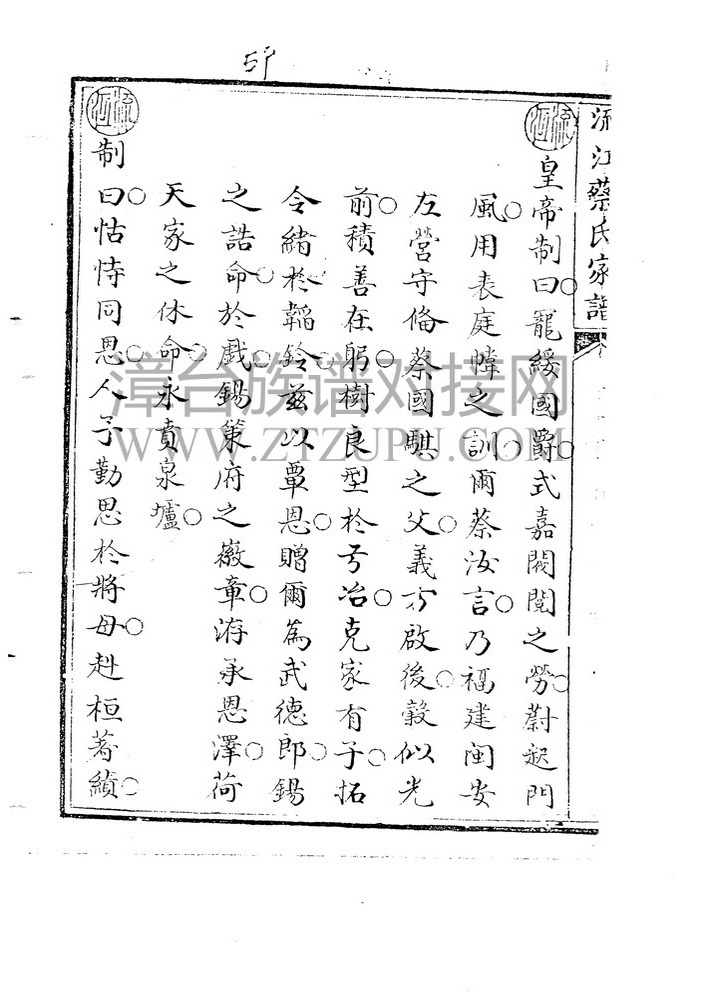 51
流江蔡氏家譜
皇帝制曰寵綏國爵式嘉閥閱之勞蔚起門
風用表庭幃之訓爾蔡汝言乃福建閩安
左營守俻蔡國騏之父義方啟後穀似光
前積善在躬樹良型於弓冶克家有子拓
令緒於韜鈐兹以覃恩贈爾為武德郎錫
之誥命於戲錫策府之徽章洊承恩澤荷
天家之休命永賁泉壚
制曰怙恃同恩人子勤思於將母赳桓著績
漳台族谱对接网
WWW.ZTZUPU.COM